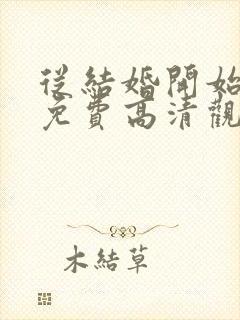 從結婚開始
免費高清觀
木結草